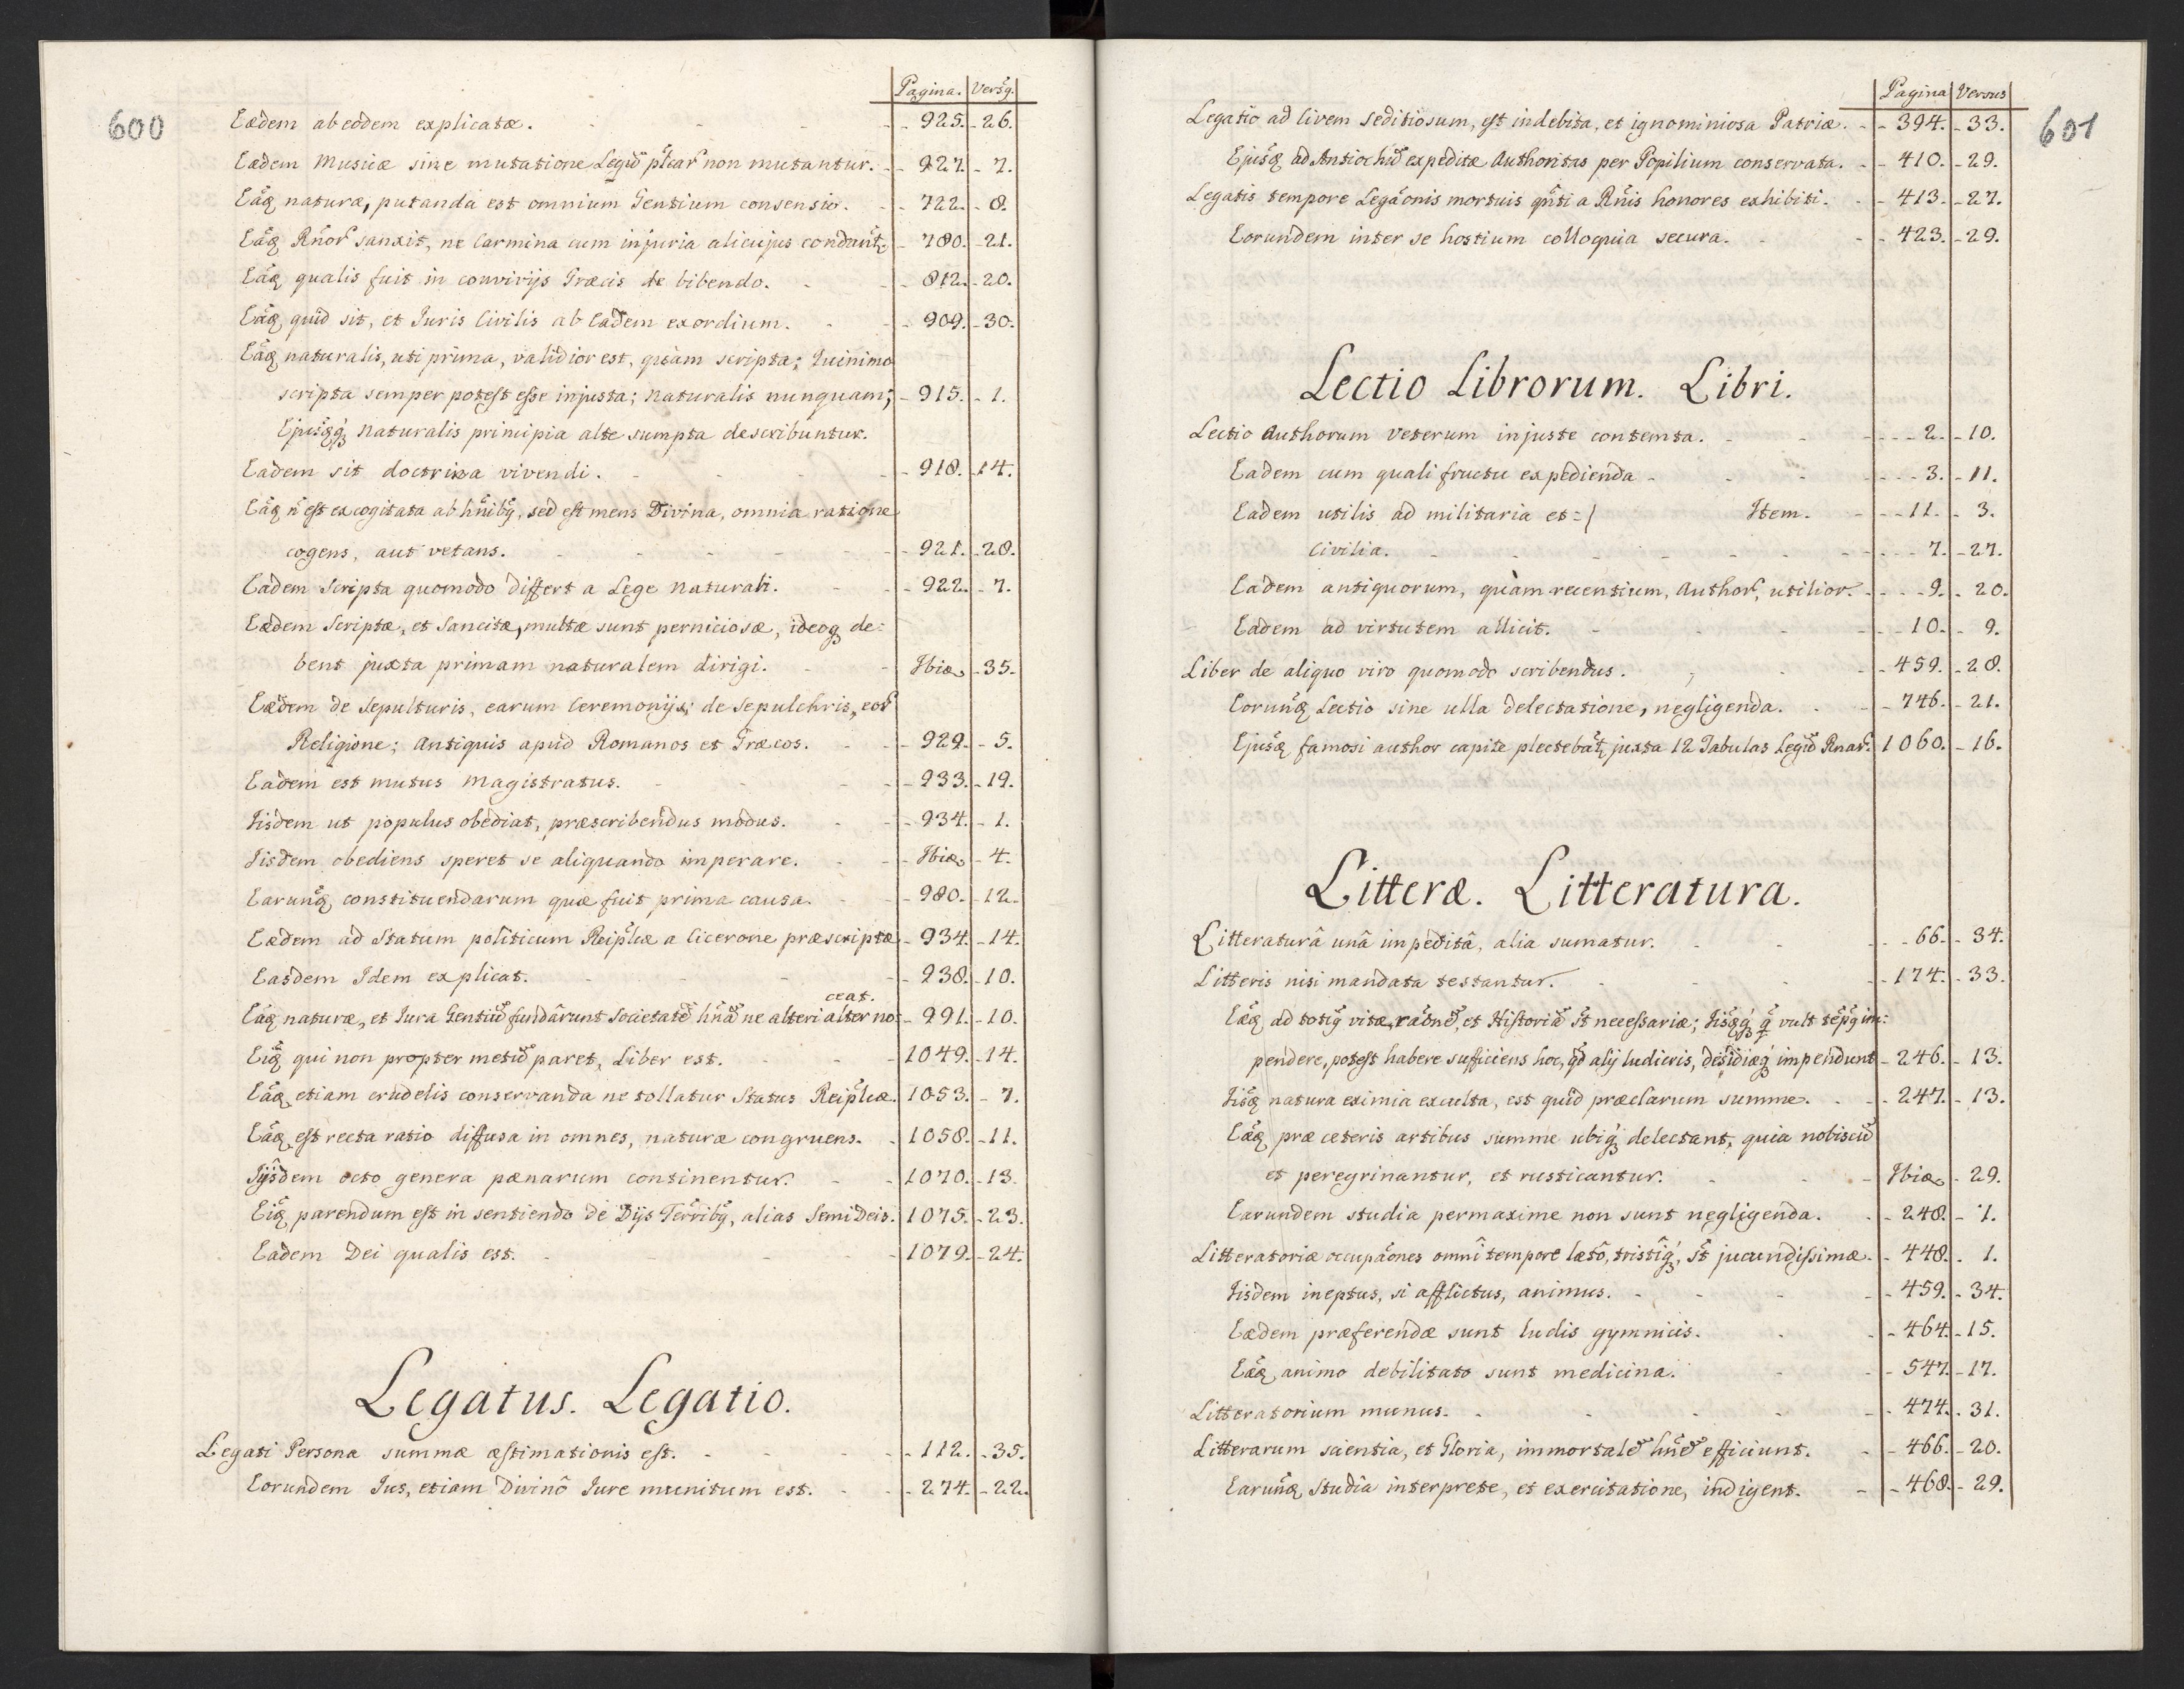 600
Pagina. Versq̃.
Eædem ab eodem explicatæ. - - - - 925. - 26.
Eædem Musicæ sine mutatione Legũ pl̃ear non mutantur. - - 927. - 7.
Eãq naturæ, putanda est omnium Gentium consensio. - - 722. - 8.
Eãq Rñor sanxit, ne Carmina cum injuria alicujus condant̃ - 780. - 21.
Eãq qualis fuit in convivijs Græcis de bibendo. - - 812. - 20.
Eãq quid sit, et Juris Civilis ab Eadem exordium. - - 909. - 30.
Eãq naturalis, uti prima, validior est, quàm scripta; Quinimo
scripta semper potest esse injusta; Naturalis nunquam; - 915. - 1.
Ejusq̃q́ Naturalis principia alte sumpta describuntur.
Eadem sit doctrina vivendi. - - - - 918. - 14.
Eãq ñ est excogitata ab hñibq̃, sed est mens Divina, omnia ratione
cogens, aut vetans. - - - - - - 921. - 28.
Eadem Scripta quomodo differt a Lege Naturali. - - 922. - 7.
Eædem Scriptæ, et Sancitæ, multæ sunt perniciosæ, ideoq de=
bent juxta primam naturalem dirigi. - - Ibid. - 35.
Eædem de Sepulturis, earum Ceremonijs; de Sepulchris, eor
Religione; Antiquis apud Romanos et Græcos. - - 929. - 5.
Eadem est mutus Magistratus. - - - - 933. - 19.
Iisdem ut populus obediat, præscribendus modus. - - 934. - 1.
Iisdem obediens speret se aliquando imperare. - - Ibid. - 4.
Earunq̃ constituendarum quæ fuit prima causa. - - 980. - 12.
Eædem ad Statum politicum Reipl̃cæ a Cicerone præscriptæ - 934. - 14.
Easdem Idem explicat. - - - - 938. - 10.
ceat.
Eãq naturæ, et Jura Gentiũ fundârunt Societatẽ hñã ne alteri alter no- 991. - 10.
Eiq̃ qui non propter metũ paret, Liber est. - - - 1049. - 14.
Eãq etiam crudelis conservanda ne tollatur Status Reipl̃cæ. 1053. - 7.
Eãq est recta ratio diffusa in omnes, naturæ congruens. - 1058. - 11.
Ijsdem octo genera pænarum continentur. - - 1070. - 13.
Eiq̃ parendum est in sentiendo de Dijs Terribq̃, alias SemiDeis. 1075. - 23.
Eadem Dei qualis est. - - - - - 1079. - 24.
Legatus. Legatio.
Legati Persona summæ æstimationis est. - - - - 112. - 35.
Eorundem Jus, etiam Divinô Jure munitum est. - - 274. - 22.
Pagina Versus
601
Legatio ad Civem Seditiosum, est indebita, et ignominiosa Patriæ. - - 394. - 33.
Ejusq̃ ad Antiochũ expeditæ Authoritas per Popilium conservata. - - 410. - 29.
Legatis tempore Legãonis mortuis qñti a Rñis honores exhibiti. - - 413. - 27.
Eorundem inter se hostium colloquia secura. - - - 423. - 29.
Lectio Librorum. Libri.
Lectio Authorum Veterum injuste contemta. - - - - - 2. - 10.
Eadem cum quali fructu expedienda - - - - - - 3. - 11.
Eadem utilis ad militaria et= / Item. - - - 11. - 3.
Civilia. - - - - - - - - - 7. - 27.
Eadem antiquorum, quàm recentium, Author, utilior. - - - 9. - 20.
Eadem ad virtutem allicit. - - - - - 10. - 9.
Liber de aliquo viro quomodo scribendus. - - - 459. - 28.
Eorunq̃ Lectio sine ulla delectatione, negligenda. - - - 746. - 21.
Ejusq̃ famosi author capite plectebat̃, juxta 12 Tabulas Legũ Rnar. 1060. - 16.
Litteræ. Litteratura.
Litteraturâ unâ impeditâ, alia sumatur. - - - - 66. - 34.
Litteris nisi mandata testantur. - - - - 174. - 33.
Eæq̃ ad totiq̃ vitæ, rãonẽ, et Historiã s̃t necessariæ; Iisq̃q́ q̃ vult tẽpq̃ im=
pendere, potest habere sufficiens hoc, q̃d alij ludicris, desidiæq́ impendunt - 246. - 13.
Iisq̃ natura eximia exculta, est quid præclarum summe. - - 247. - 13.
Eæq̃ præ ceteris artibus summe ubiq́ delectant, quia nobiscũ
et peregrinantur, et rusticantur. - - - Ibid. - 29.
Earundem studia permaxime non sunt negligenda. - - 248. - 1.
Litteratoriæ occupãones omnî tempore lætô, tristîq́, s̃t jucundissimæ. - 448. - 1.
Iisdem ineptus, si afflictus, animus. - - - - 459. - 34.
Eædem præferendæ sunt ludis gymnicis. - - - 464. - 15.
Eæq̃ animo debilitato sunt medicina. - - - 547. - 17.
Litteratorium munus. - - - - - - 474. - 31.
Litterarum scientia, et Gloria, immortalẽ hñẽ efficiunt. - - 466. - 20.
Earunq̃ Studia interprete, et exercitatione, indigent. - - 468. - 29.